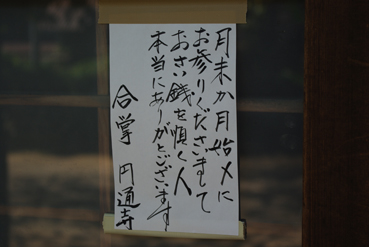 月末か月始メに
お参りくださいまして
おさい銭を頂く人
本当にありがとございます
合掌 円通寺